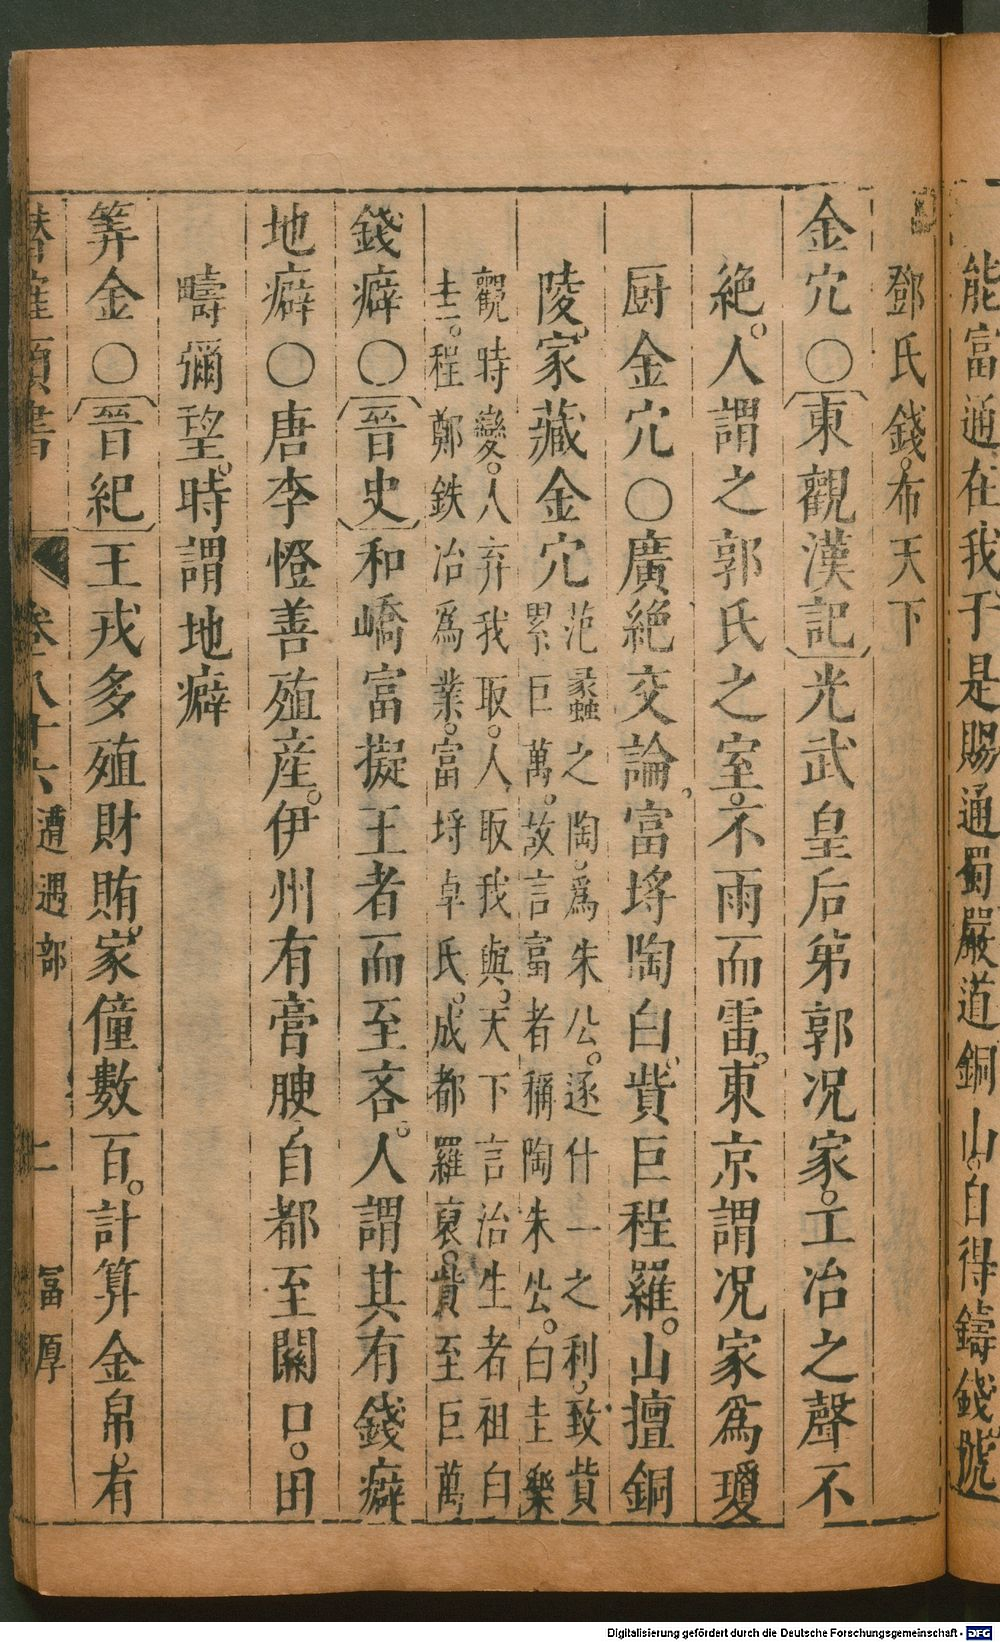 能富通在我于是賜通蜀嚴道銅山自得鑄錢號
鄧氏錢。布天下
金穴○〔東觀漢記〕光武皇后弟郭况家。工冶之聲不
絶。人謂之郭氏之室。不雨而雷。東京謂况家爲瓊
厨金穴○廣絶交論。富埒陶白。貲巨程羅。山擅銅
陵。家藏金穴范蠡之陶。爲朱公。逐什一之利。致貲
累巨萬。故言富者稱陶朱公。白圭樂
觀時變。人弃我取。人取我與。天下言治生者祖白
圭。程鄭鉄冶爲業。富埒卓氏。成都羅裒。貲至巨萬
錢癖○〔晉史〕和嶠富擬王者而至吝。人謂其有錢癖
地癖○唐李憕善殖産。伊州有膏腴。自都至關口。田
疇彌望。時謂地癖
筭金○〔晉紀〕王戎多殖財賄。家僮數百。計算金帛。有
卷八十六 遭遇部 二 冨厚
Digitalisierung gefördert durch die Deutsche Forschungsgemeinschaft - DFG